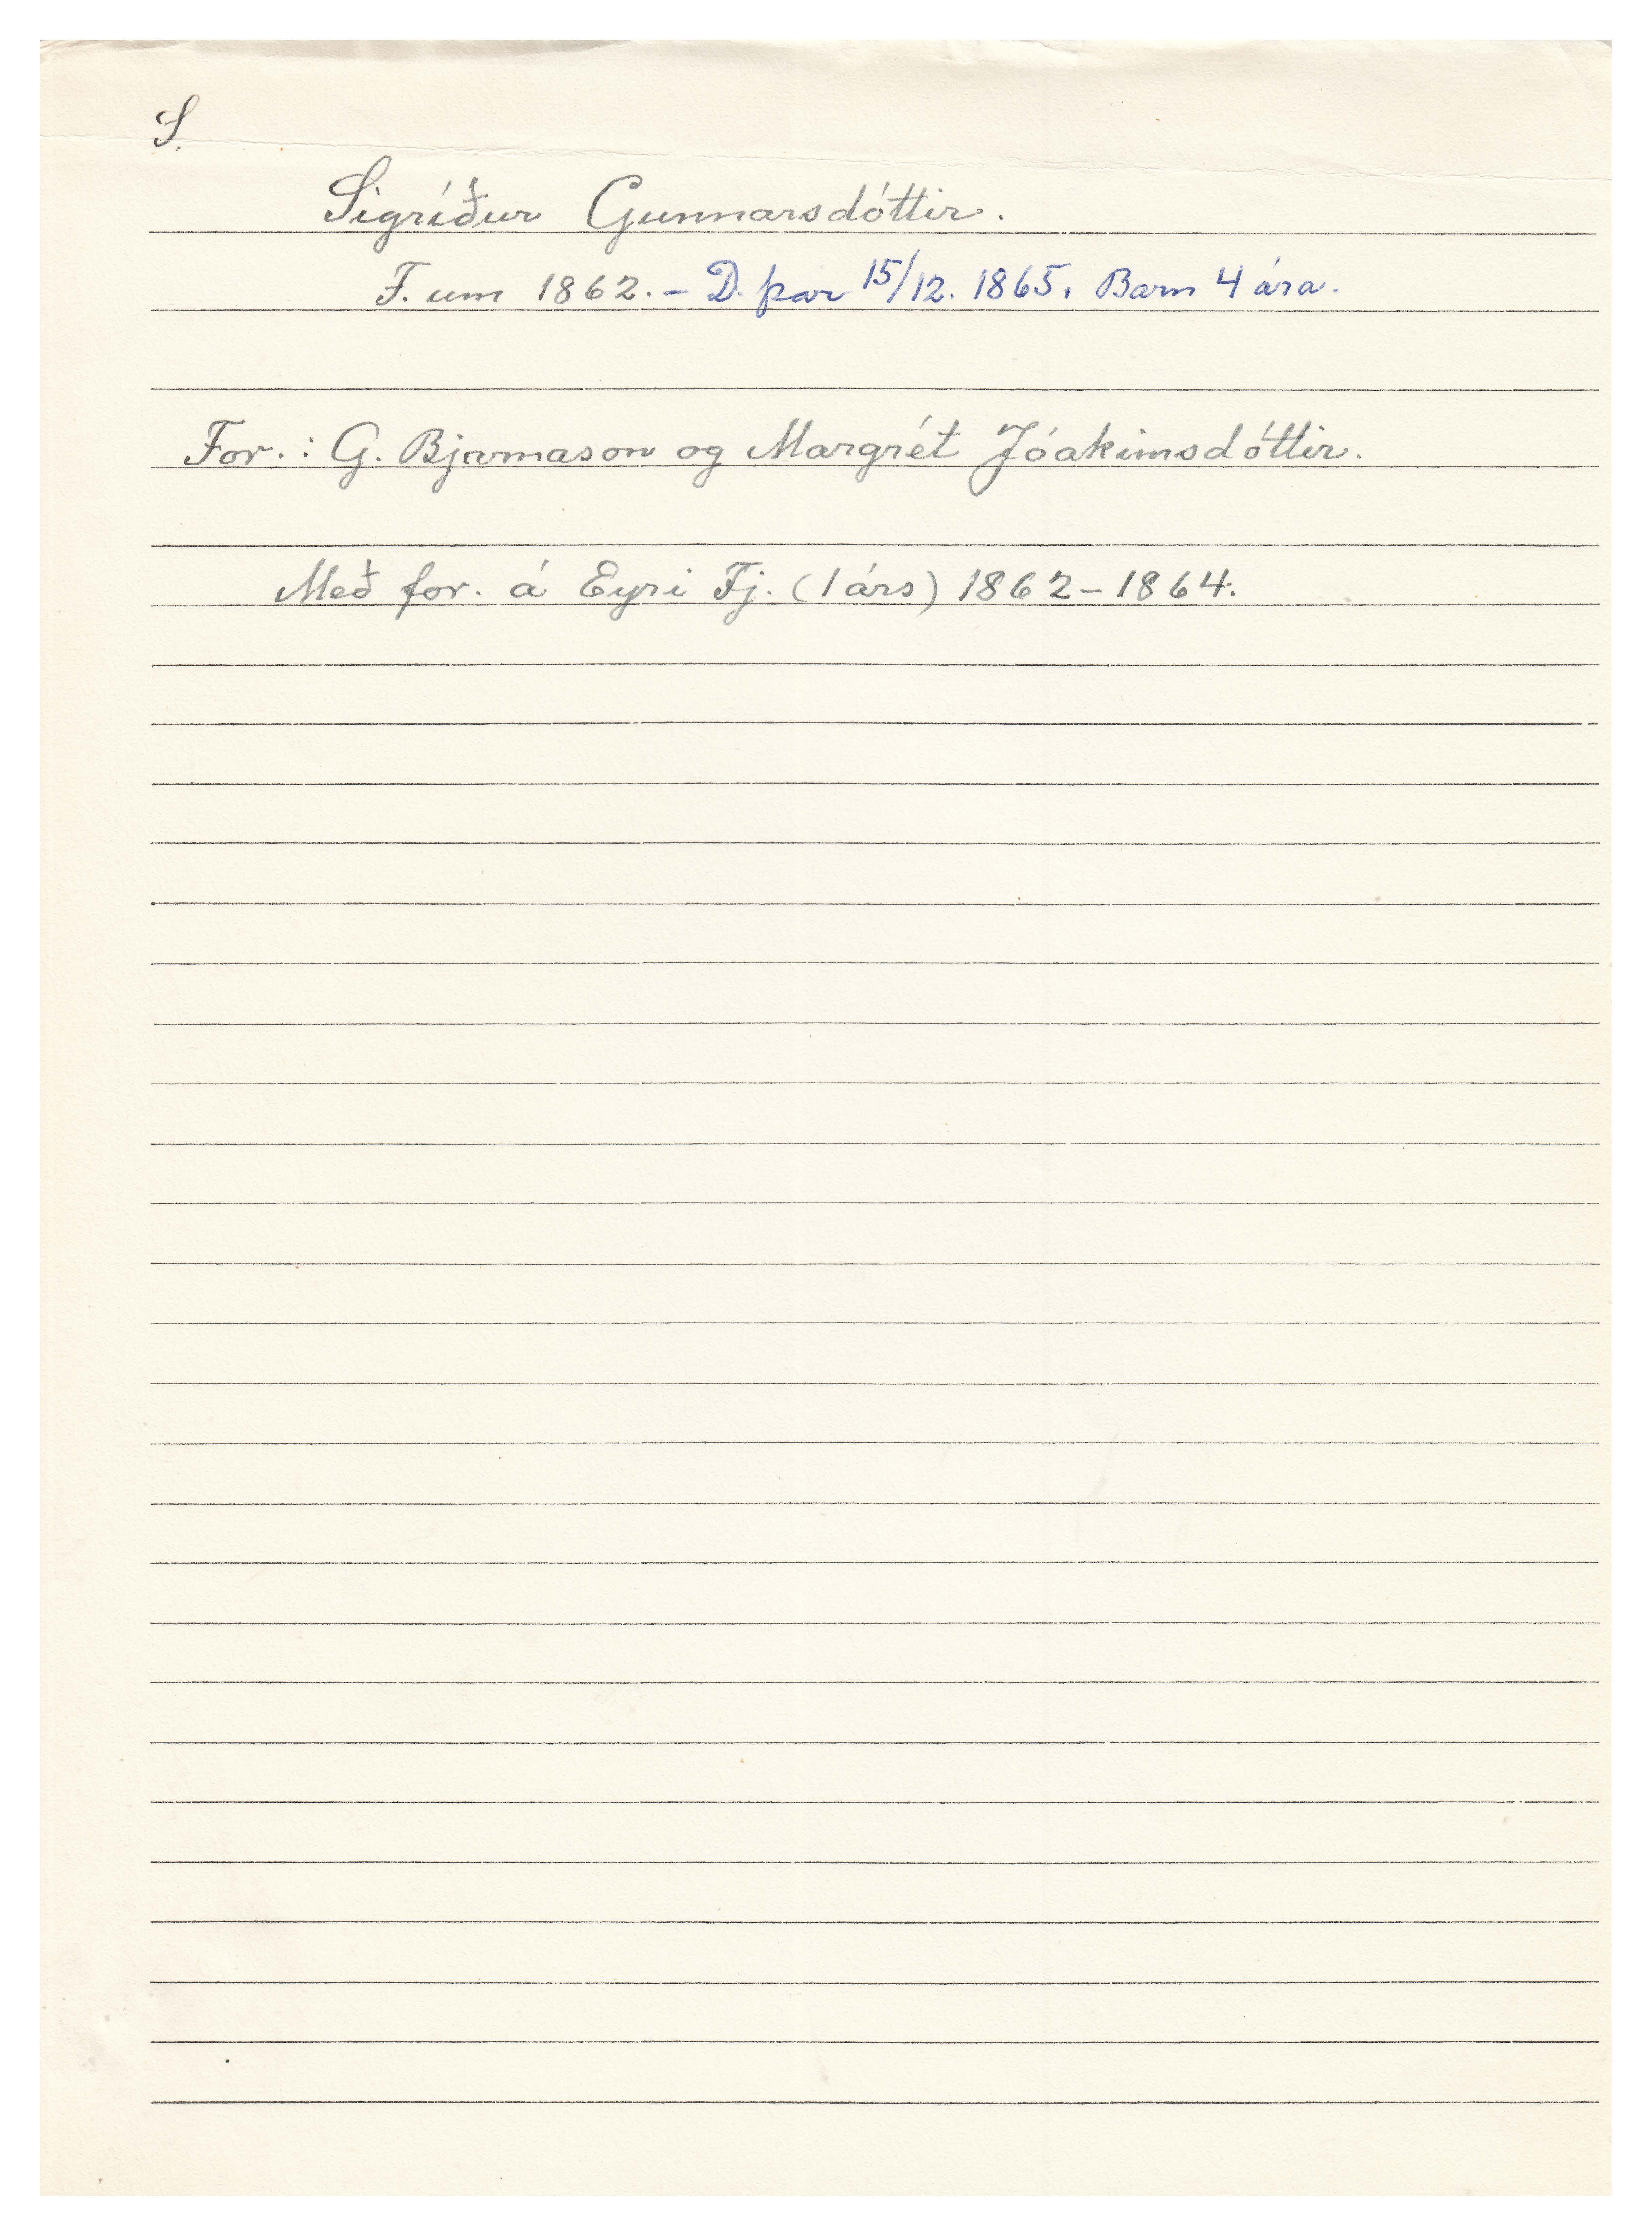 S.
Sigríður Gunnarsdóttir.
F. um 1862. - D. þar 15/12. 1865. Barn 4 ára.
For.: G. Bjarnason og Margrét Jóakimsdóttir.
Með for. á Eyri Fj. (1 árs) 1862-1864.